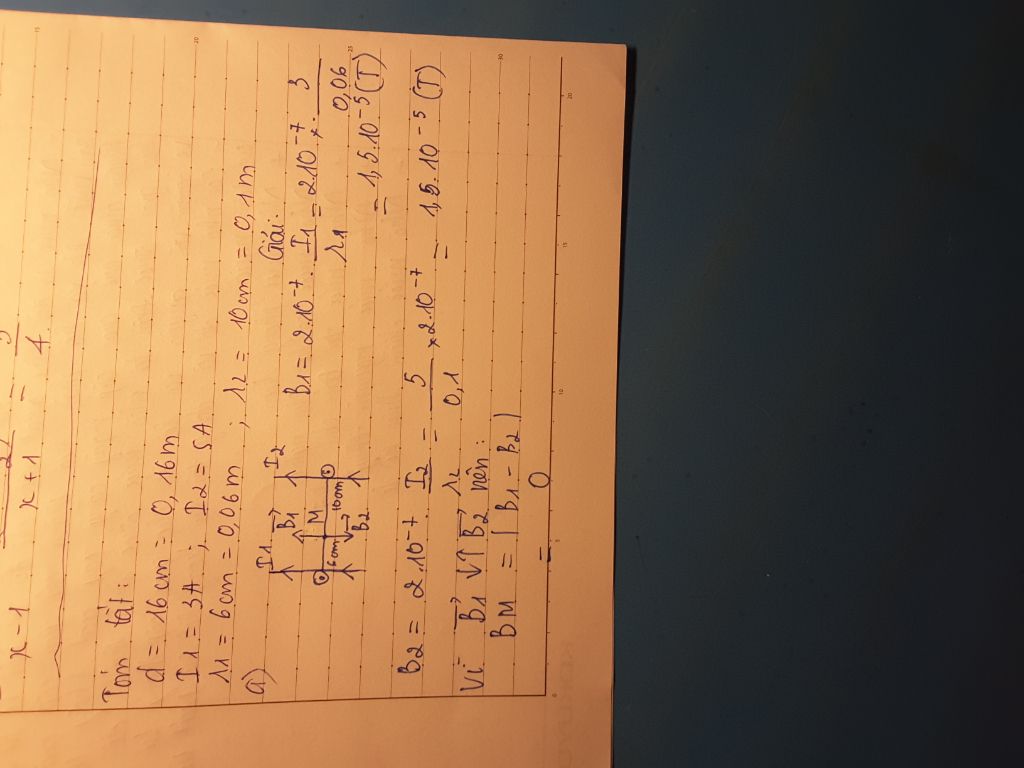 x - 1
x + 1
4
Tóm tắt:
d = 16cm = 0,16m
I1 = 3A ; I2 = 5A
r1 = 6cm = 0,06m ; r2 = 10cm = 0,1m
a)
Giải:
I1 B1 I2
M
6cm 10cm
B2
B1 = 2.10-7. I1/r1 = 2.10-7 x. 3/0,06
= 1,5.10-5 (T)
B2 = 2.10-7. I2/r2 = 5/0,1 x 2.10-7 = 1,5.10-5 (T)
Vì B1 ↓↑ B2 nên:
BM = |B1 - B2|
= 0